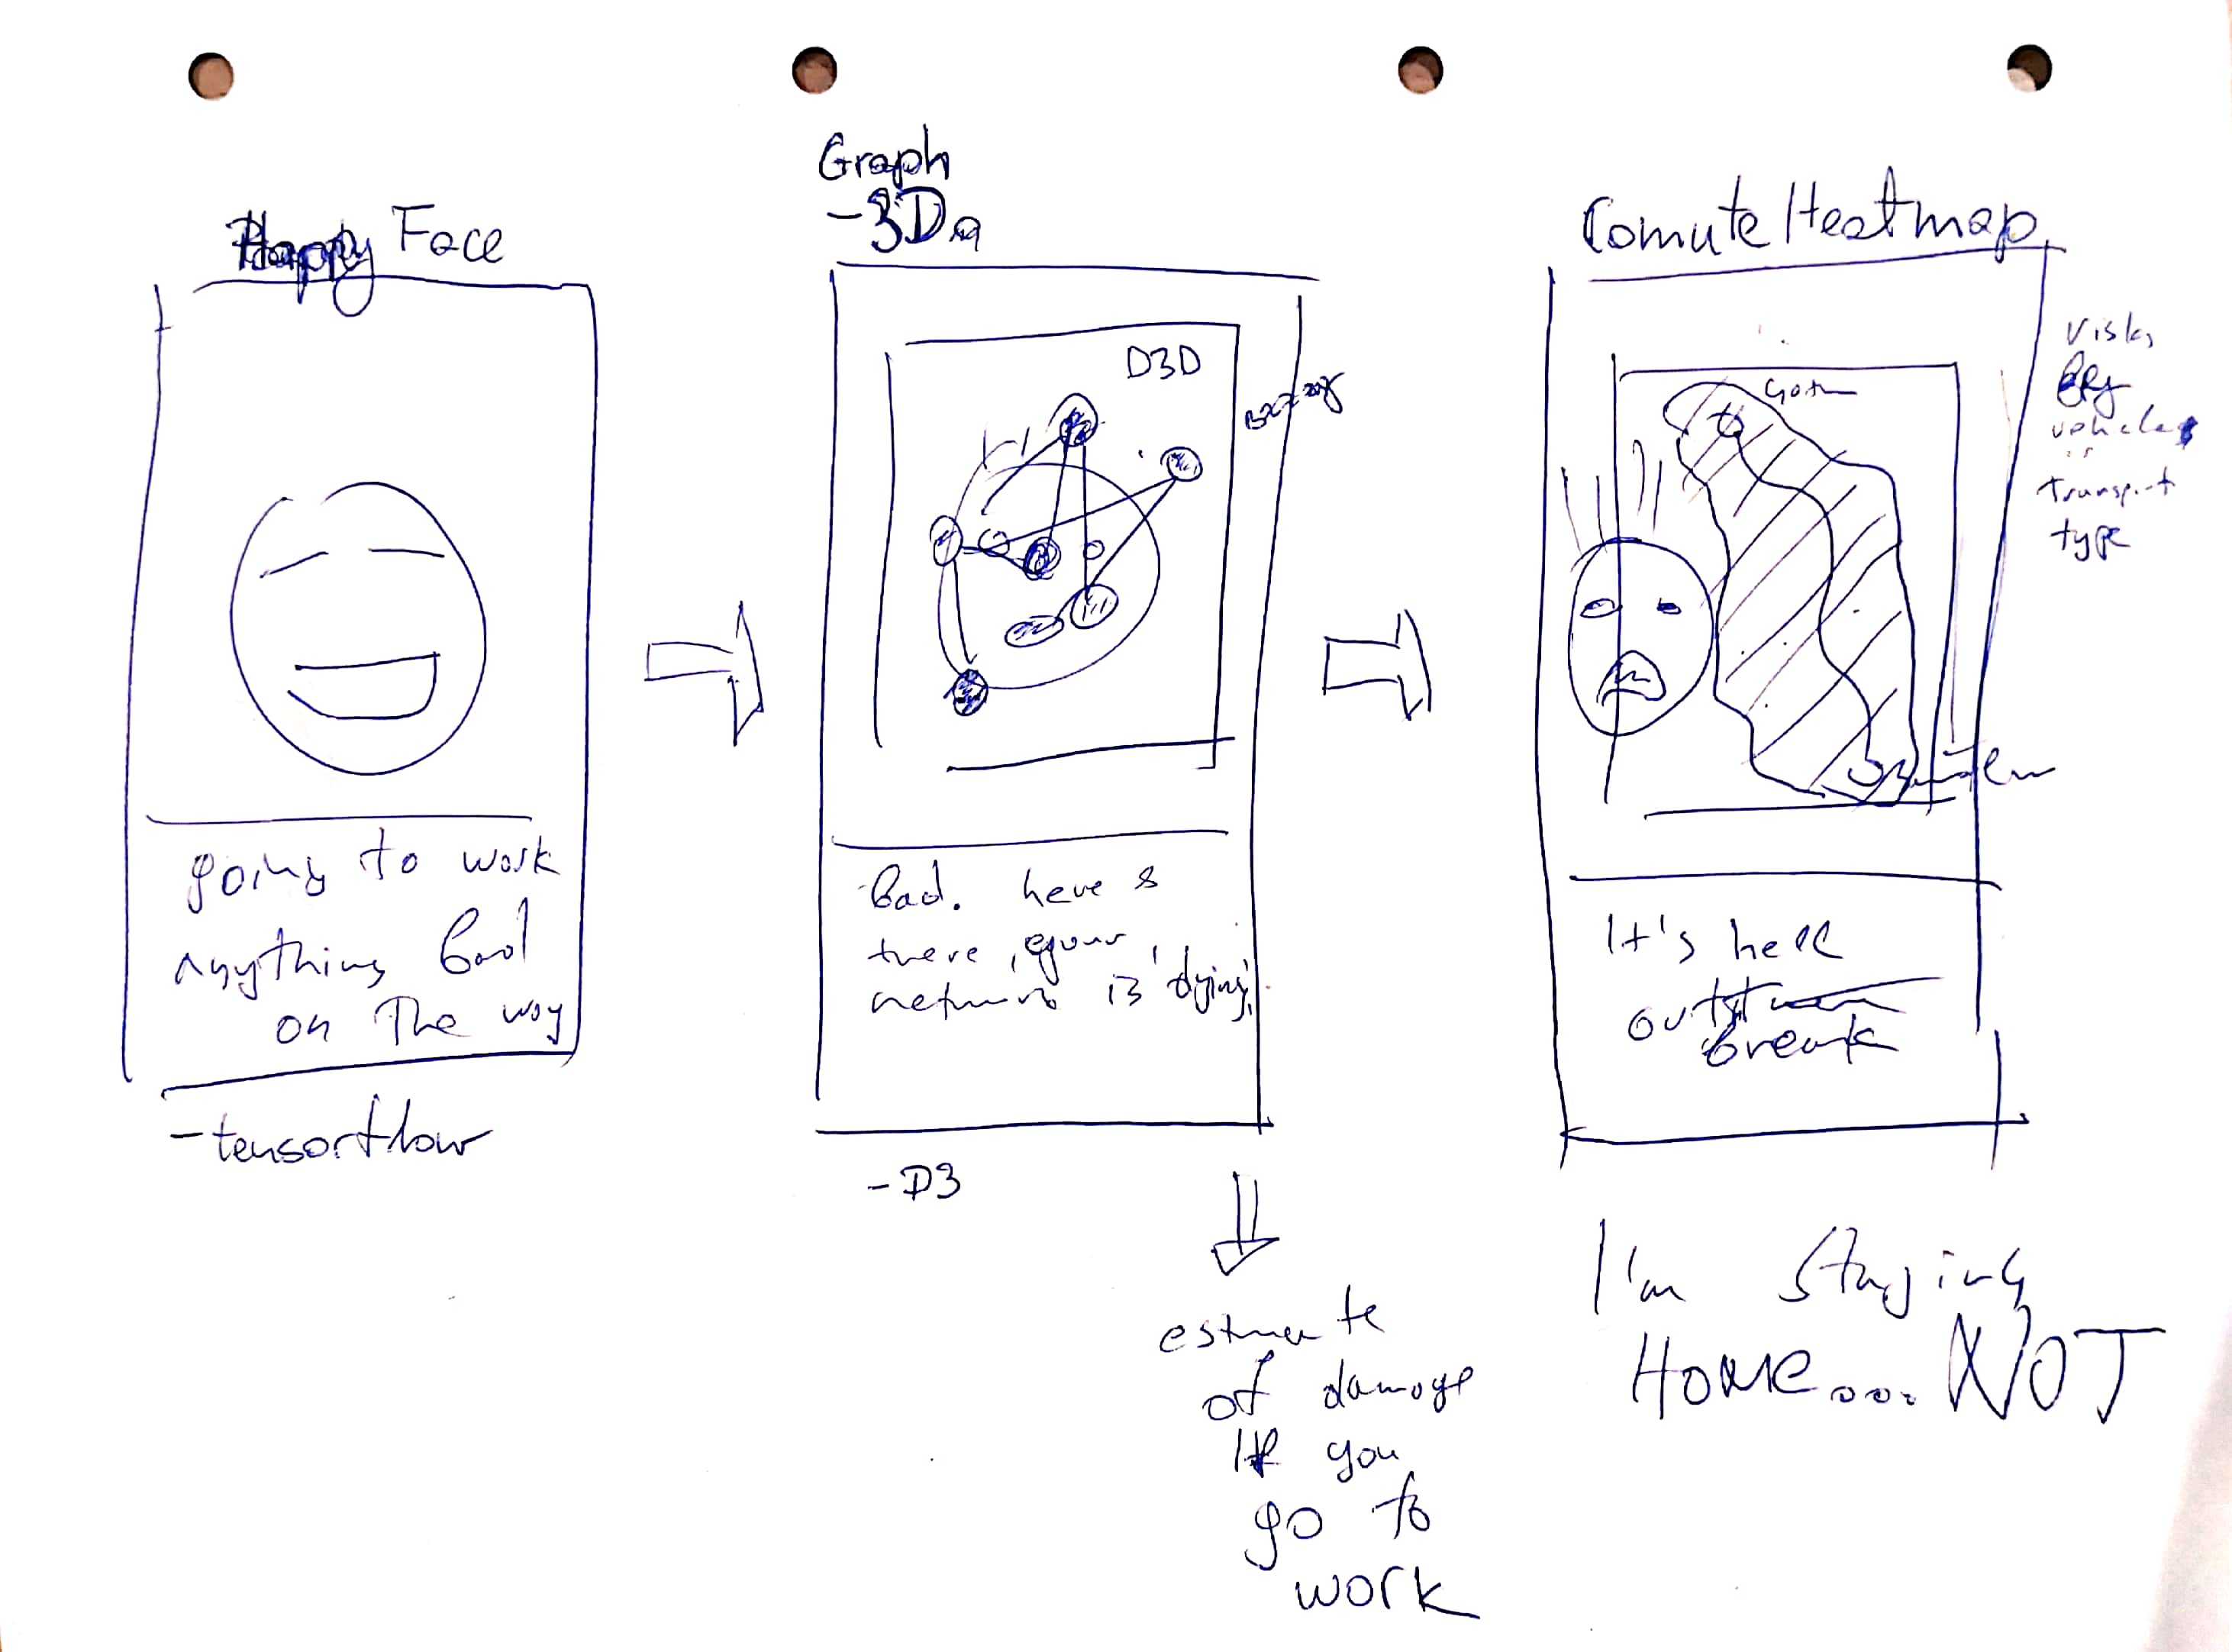 Happy Face
going to work
anything bad
on The way
-tensorflow
Graph
-3D
D3D
Bad. here &
there, your
network is 'dying'
-D3
estimate
of damage
If you
go to
work
Comute Heatmap
Risk
By
vehicle
or
transport
type
It's hell
out
break
I'm staying
HOME.... NOT